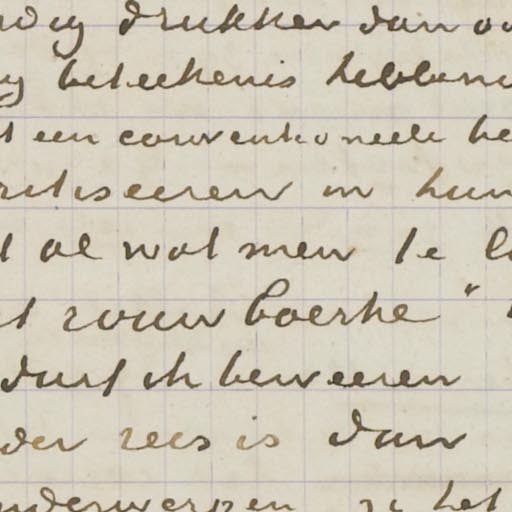 drukken dan
beteekenis hebben
een conventioneele
in hun
al wat men te
rouw boerke"
durf ik beweeren
rees is dan
onderwerpen het